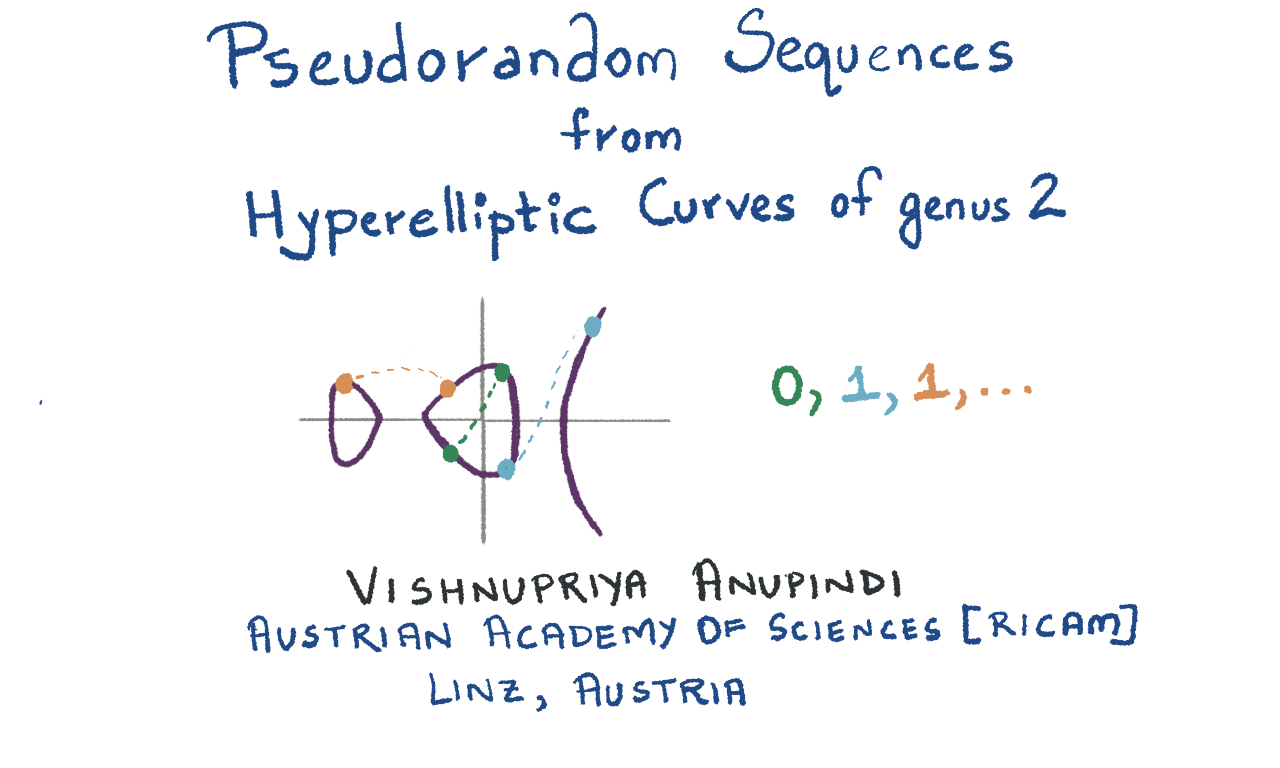 Pseudorandom Sequences
from
Hyperelliptic Curves of genus 2
0, 1, 1, ...
VISHNUPRIYA ANUPINDI
AUSTRIAN ACADEMY OF SCIENCES [RICAM]
LINZ, AUSTRIA